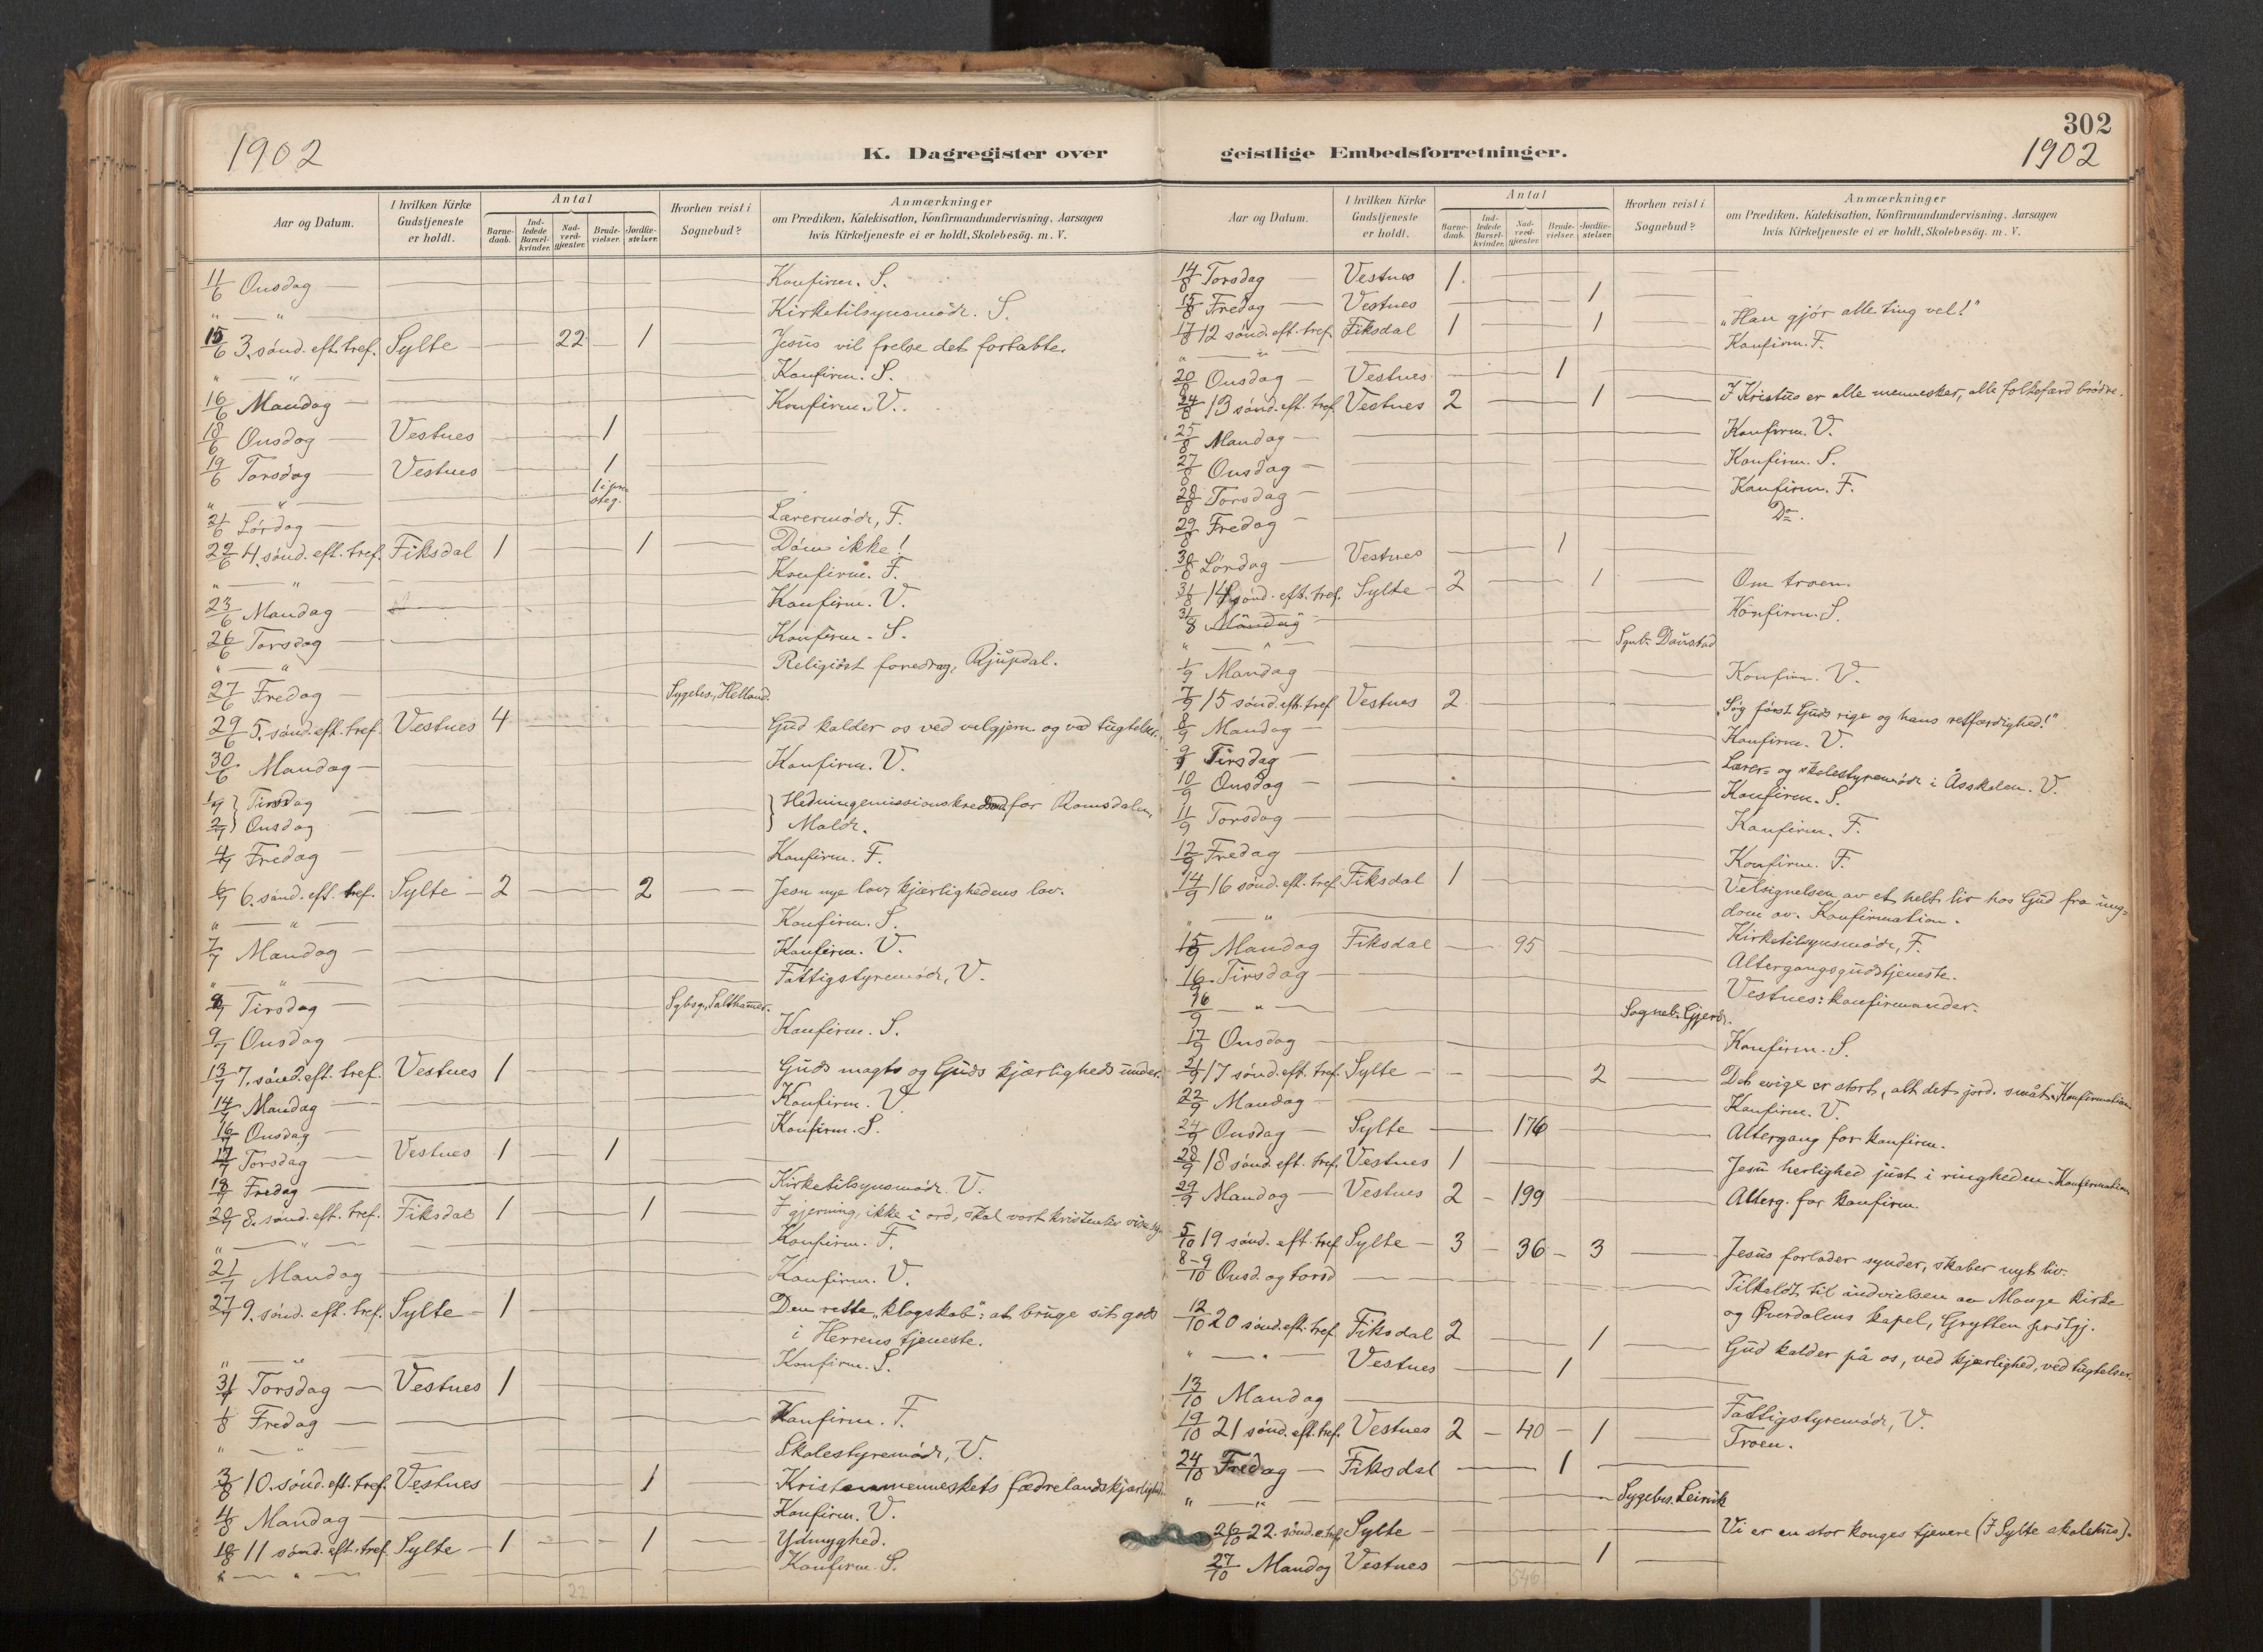 1902
K. Dagregister over
Aar og Datum.
I hvilken Kirke Gudstjeneste er holdt.
Antal
Barne-daab.
Ind-ledede Barsel-kvinder.
Nad-verd-gjester.
Brude-vielser.
Jordfæ-stelser.
Hvorhen reist i Sognebud?
Anmærkninger
om Prædiken, Katekisation, Konfirmandundervisning, Aarsagen
hvis Kirketjeneste ei er holdt, Skolebesøg. m. V.
11/6 Onsdag — Konfirm. S.
" — " Kirketilsynsmöde. S.
15/6 3. sønd. eft. tref. Sylte — 22 — 1 Jesus vil frelse det fortabte.
" — " Konfirm. S.
16/6 Mandag — Konfirm. V.
18/6 Onsdag — Vestnes 1
19/6 Torsdag — Vestnes 1
" — " 1 i pre steg.
21/6 Lørdag — Lærermöde, F.
22/6 4. sønd. eft. tref. Fiksdal 1 — 1 Döm ikke!
" — " Konfirm. F.
23/6 Mandag — Konfirm. V.
26/6 Torsdag — Konfirm. S.
" — " Religiöst foredrag, Rjupdal.
27/6 Fredag — Sygebes., Helland.
29/6 5. sønd. eft. tref. Vestnes 4 Gud kalder os ved velgjern. og ved tugtelser.
30/6 Mandag — Konfirm. V.
1/7 } Tirsdag } Hedningemissionskredsm. for Romsdalen,
2/7 } Onsdag } Molde.
4/7 Fredag — Konfirm. F.
6/7 6. sønd. eft. tref. Sylte — 2 — 2 Jesu nye lov, kjærlighedens lov.
" — " Konfirm. S.
7/7 Mandag — Konfirm. V.
" — " Fattigstyremöde, V.
8/7 Tirsdag — Sybsg., Salthamer.
9/7 Onsdag — Konfirm. S.
13/7 7. sønd. eft. tref. Vestnes 1 Guds magts og Guds kjærligheds under.
14/7 Mandag — Konfirm. V
16/7 Onsdag — Konfirm. S.
17/7 Torsdag — Vestnes 1 — 1
18/7 Fredag — Kirketilsynsmöde V.
20/7 8. sønd. eft. tref. Fiksdal 1 — 1 I gjerning, ikke i ord, skal vort kristenliv vise sig.
" — " Konfirm. F.
21/7 Mandag Konfirm. V.
27/7 9. sønd. eft. tref. Sylte — 1 Den rette „klogskab": at bruge sit gods
i Herrens tjeneste.
" — " Konfirm. S.
31/7 Torsdag — Vestnes 1
1/8 Fredag — Konfirm. F.
" — " Skolestyremöde, V.
3/8 10. sønd. eft. tref. Vestnes 1 Kristenmenneskets fædrelandskjærlighed.
4/8 Mandag — Konfirm. V.
10/8 11 sønd. eft. tref. Sylte — 1 — 1 Ydmyghed.
" — " Konfirm. S.
22
302
1902
geistlige Embedsforretninger.
Aar og Datum.
I hvilken Kirke Gudstjeneste er holdt.
Antal
Barne-daab.
Ind-ledede Barsel-kvinder.
Nad-verd-gjester.
Brude-vielser.
Jordfæ-stelser.
Hvorhen reist i Sognebud?
Anmærkninger
om Prædiken, Katekisation, Konfirmandundervisning, Aarsagen
hvis Kirketjeneste ei er holdt, Skolebesøg. m. V.
14/8 Torsdag Vestnes 1
15/8 Fredag — Vestnes 1
17/8 12 sønd. eft. tref. Fiksdal 1 — 1 „Han gjör alle ting vel!"
" — " Konfirm. F.
20/8 Onsdag — Vestnes 1
24/8 13 sønd. eft. tref. Vestnes 2 — 1 I Kristus er alle mennesker, alle folkefærd brödre.
25/8 Mandag — Konfirm. V.
27/8 Onsdag — Konfirm. S.
28/8 Torsdag — Konfirm. F.
29/8 Fredag — Do.
30/8 Lørdag — Vestnes 1
31/8 14 sønd. eft. tref. Sylte — 2 — 1 Om troen.
31/8 Mandag — Konfirm. S.
" — " Sgnb. Daustad
1/9 Mandag — Konfirm. V.
7/9 15 sønd. eft. tref Vestnes 2 „Søg først Guds rige og hans retfærdighed!"
8/9 Mandag — Konfirm. V.
9/9 Tirsdag — Lærer- og skolestyremöde i Åsskolen. V.
10/9 Onsdag — Konfirm. S.
11/9 Torsdag — Konfirm. F.
12/9 Fredag — Konfirm. F.
14/9 16 sønd. eft. tref Fiksdal 1 Velsignelsen av et helt liv hos Gud fra ung-
dom av. Konfirmation.
" — " Kirketilsynsmöde, F.
15/9 Mandag Fiksdal — 95 Altergangsgudstjeneste.
16/9 Tirsdag — Vestnes: konfirmander.
16/9 — " — Sogneb. Gjerde.
17/9 Onsdag — Konfirm. S.
21/9 17 sønd. eft. tref. Sylte — 2 Det evige er stort, alt det jord. småt. Konfirmation
22/9 Mandag — Konfirm. V.
24/9 Onsdag — Sylte — 176 Altergang for konfirm.
28/9 18 sønd. eft. tref. Vestnes 1 Jesu herlighed just i ringheden. Konfirmation
29/9 Mandag — Vestnes 2 — 199 Alterg. for konfirm.
5/10 19 sønd. eft. tref Sylte — 3 — 36 — 3 Jesus forlader synder, skaber nyt liv.
8-9/10 Onsd. og torsd Tilkaldt til indvielsen av Mange kirke
og Øverdalens kapel, Grytten prstgj.
12/10 20 sønd. eft. tref Fiksdal 2 — 1 Gud kalder på os, ved kjærlighed, ved tugtelser.
" — " Vestnes 1
13/10 Mandag Fattigstyremöde, V.
19/10 21 sønd. eft. tref. Vestnes 2 — 40 — 1 Troen.
24/10 Fredag — Fiksdal 1
" — " Sygebes. Leirvik
26/10 22. sønd. e. tref Sylte — Vi er en stor konges tjenere (I Sylte skolehus).
27/10 Mandag Vestnes 1
546